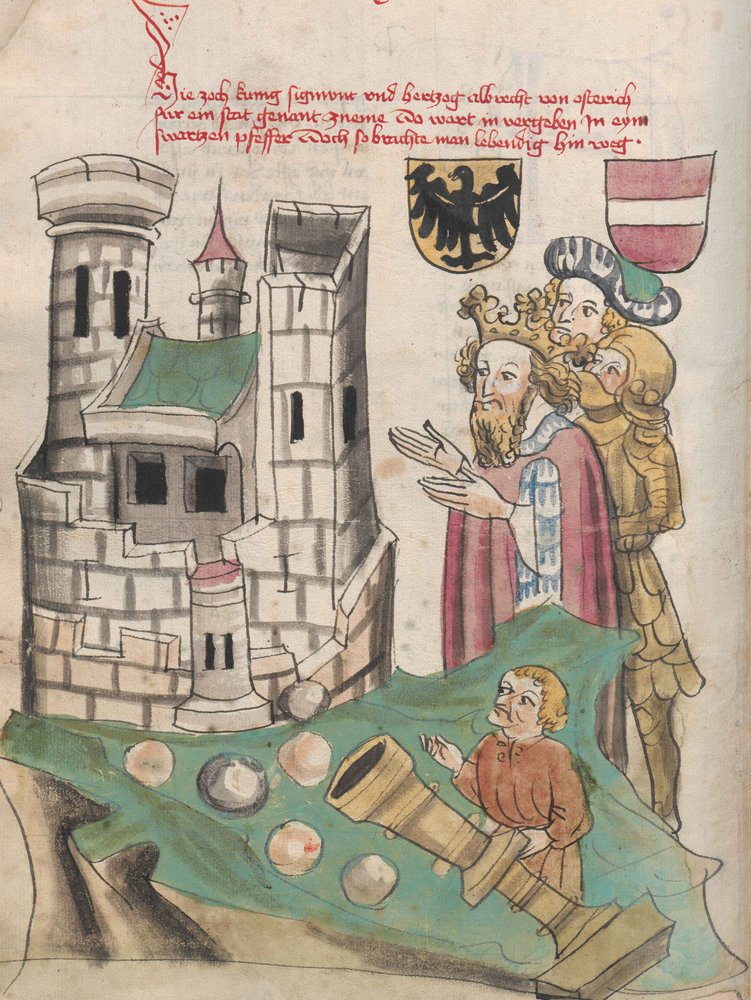 Hie zoch kunig sigmont vnd hertzog albrecht von osterich
für ein stat genant zneme Do wart in vergeben In eym
swartzen pfeffer Doch so brachte man lebendig hin weg ·